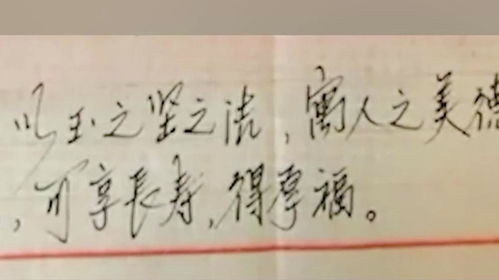 以玉之坚之洁，寓人之美德
，可享長寿，得厚福。